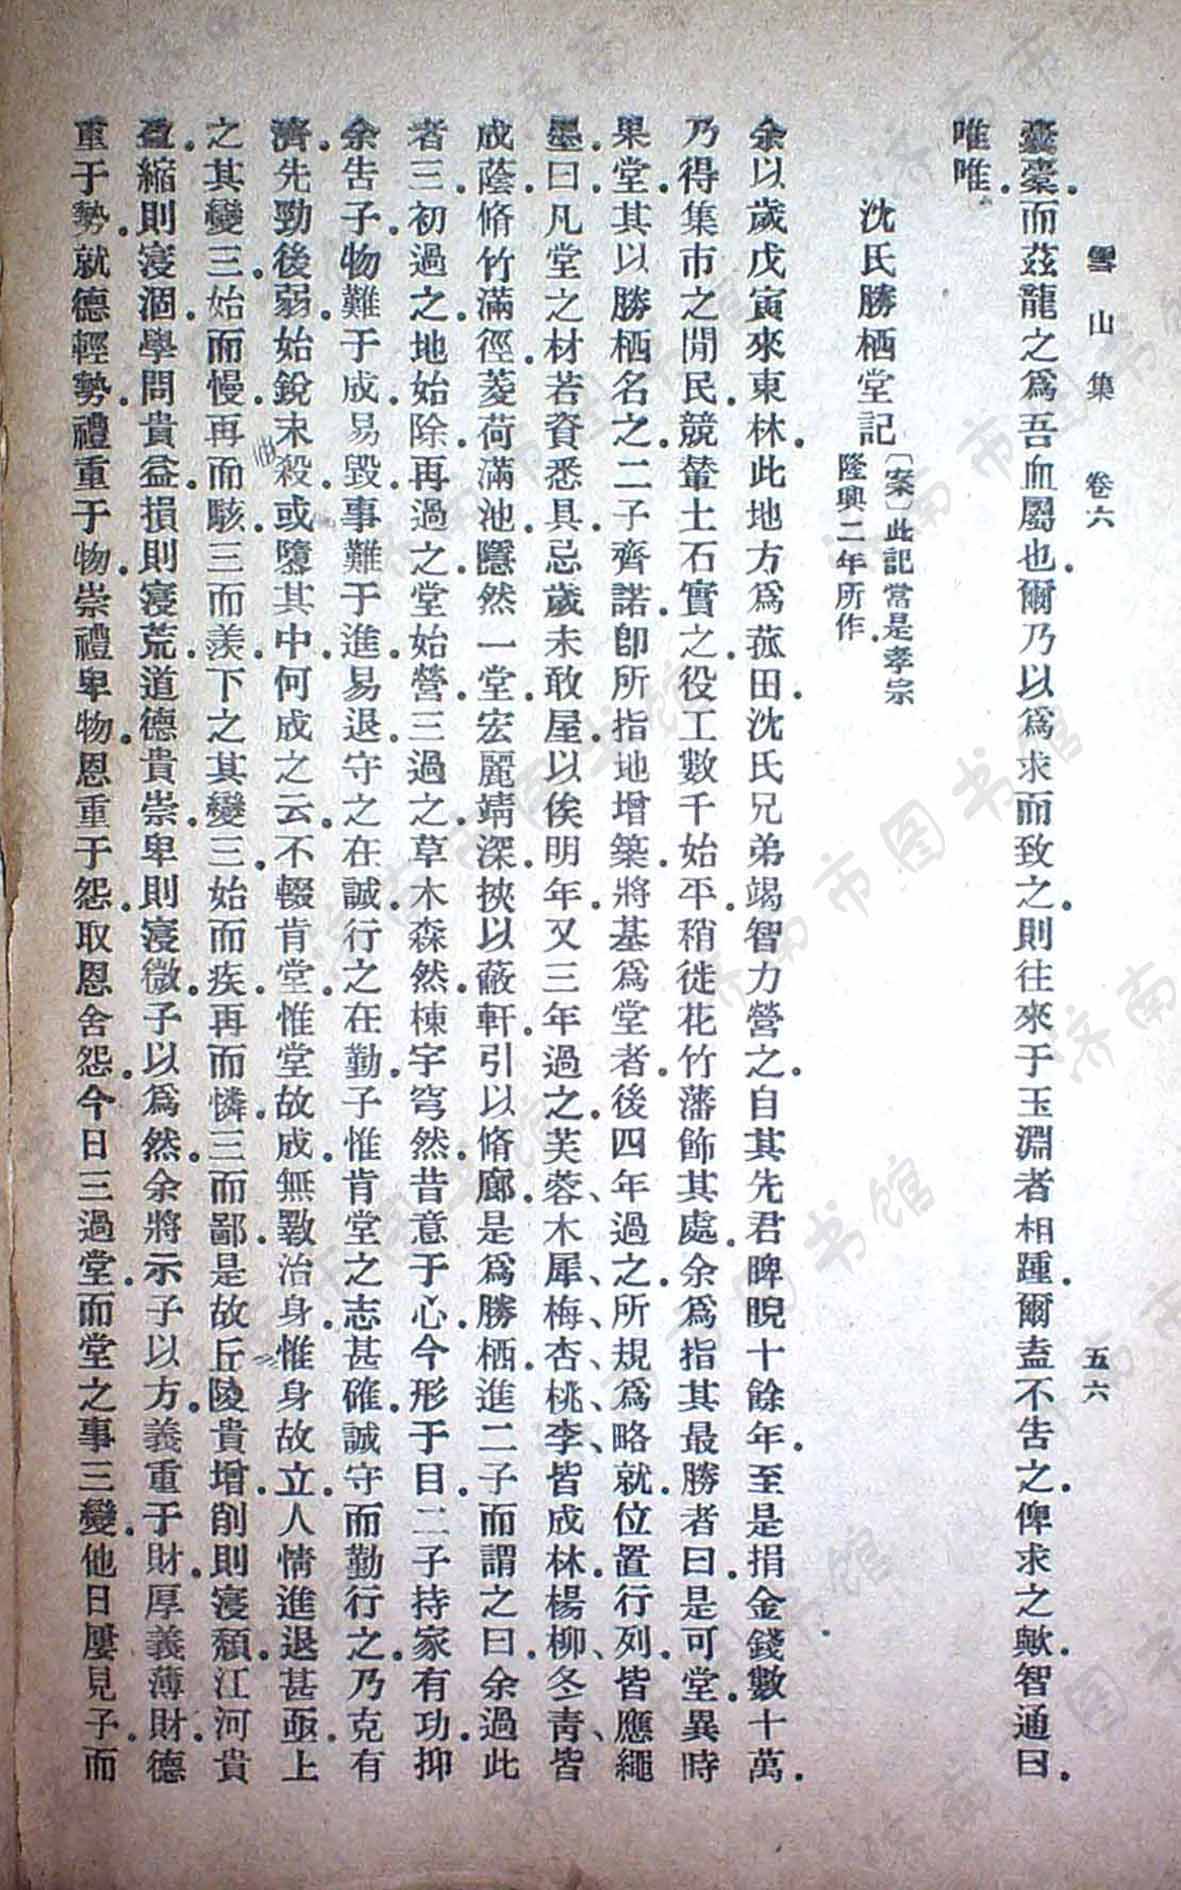 雪山集 卷六 五六
囊橐。而茲龍之爲吾血屬也。爾乃以爲求而致之。則往來于玉淵者相踵。爾盍不告之。俾求之歟。智通曰。
唯唯。
沈氏勝栖堂記〔案〕此記當是孝宗
隆興二年所作
余以歲戊寅來東林。此地方爲菰田。沈氏兄弟竭智力營之。自其先君睥睨十餘年。至是捐金錢數十萬。
乃得集市之閒民。競輦土石實之。役工數千始平。稍徙花竹藩飾其處。余爲指其最勝者曰。是可堂。異時
果堂。其以勝栖名之。二子齊諾。卽所指地增築。將基爲堂者。後四年過之。所規爲略就。位置行列。皆應繩
墨。曰。凡堂之材若資悉具。忌歲未敢屋。以俟明年。又三年過之。芙蓉、木犀、梅、杏、桃、李、皆成林。楊柳、冬靑、皆
成蔭。脩竹滿徑。菱荷滿池。隱然一堂。宏麗靖深。挾以蔽軒。引以脩廊。是爲勝栖。進二子而謂之曰。余過此
者三。初過之。地始除。再過之。堂始營。三過之。草木森然。棟宇穹然。昔意于心。今形于目。二子持家有功。抑
余告子。物難于成。易毀。事難于進。易退。守之在誠。行之在勤。子惟肯堂之志甚確。誠守而勤行之。乃克有
濟。先勁後弱。始銳末殺。或隳其中。何成之云。不輟肯堂。惟堂故成。無斁治身。惟身故立。人情進退甚亟。上
之其變三。始而慢。再而駭。三而羨。下之其變三。始而疾。再而憐。三而鄙。是故丘陵貴增。削則寖頹。江河貴
盈。縮則寖涸。學問貴益。損則寖荒。道德貴崇。卑則寖微。子以爲然。余將示子以方。義重于財。厚義薄財。德
重于勢。就德輕勢。禮重于物。崇禮卑物。恩重于怨。取恩舍怨。今日三過堂。而堂之事三變。他日屢見子。而
济南市图书馆